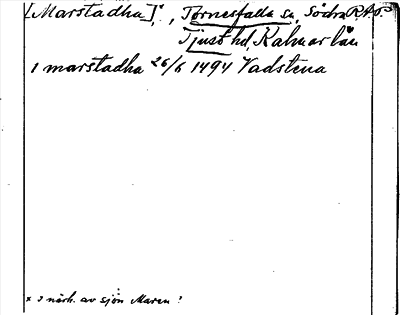 [Marstadha]ˣ, Törnesfalla sn, Södra R.A.P.
Tjust hd, Kalmar län
i marstadha 26/6 1494 Vadstena
x i närh. av sjön Maren?